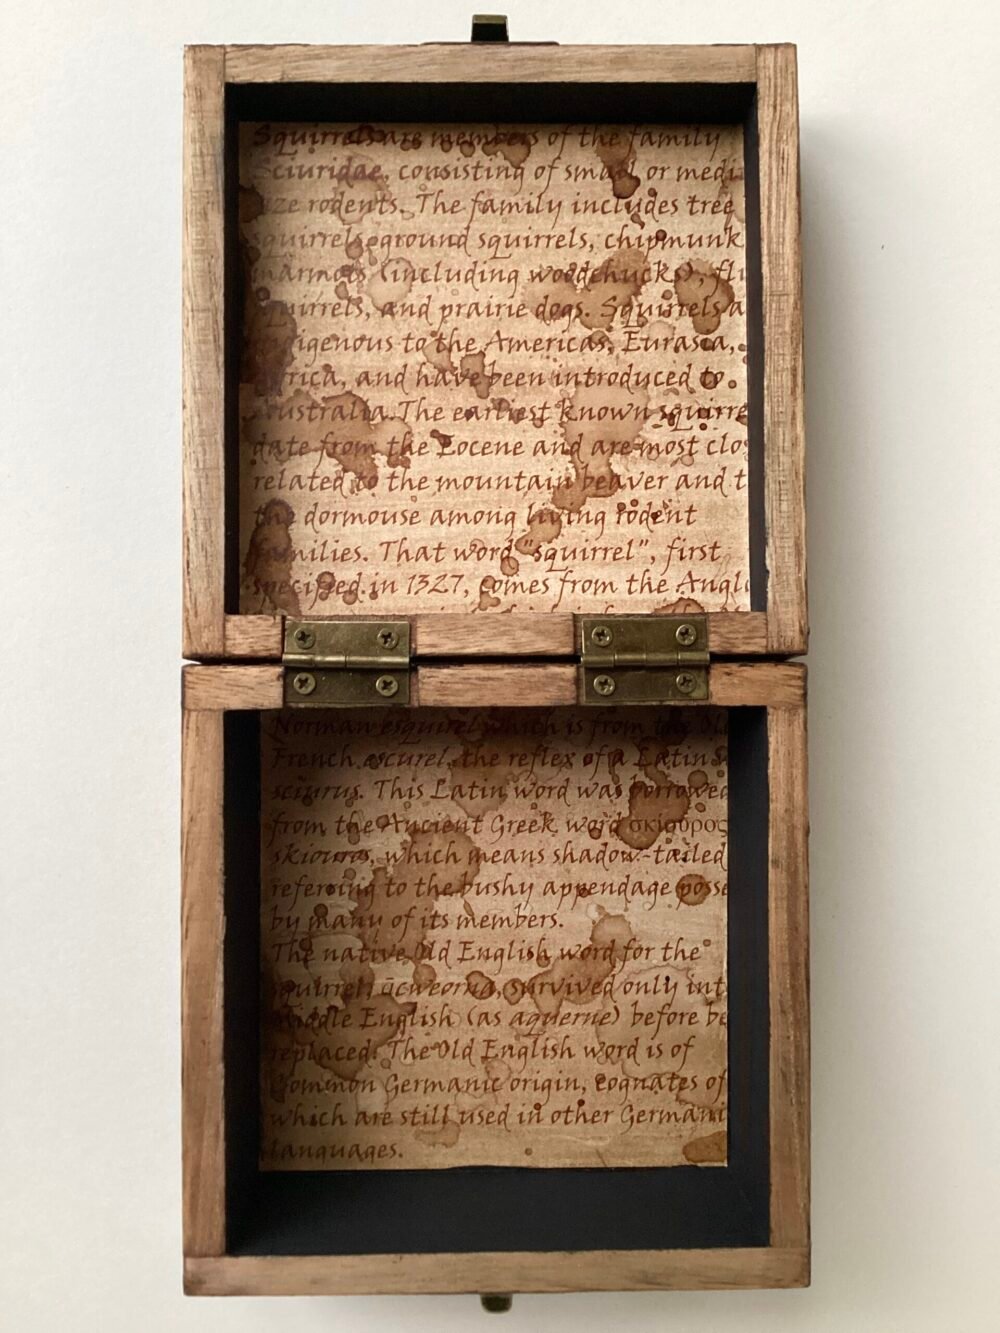 Squirrels are members of the family
Sciuridae, consisting of small or medi
ze rodents. The family includes tree
squirrels, ground squirrels, chipmunk
marmots (including woodchucks), fl
squirrels, and prairie dogs. Squirrels a
digenous to the Americas, Eurasia,
rica, and have been introduced to
Australia. The earliest known squirre
date from the Eocene and are most clo
related to the mountain beaver and t
the dormouse among living rodent
families. That word "squirrel", first
specified in 1327, comes from the Anglo
Norman esquirel which is from the Old
French escurel, the reflex of a Latin
sciurus. This Latin word was borrowed
from the Ancient Greek word σκίουρος
skiouros, which means shadow-tailed
referring to the bushy appendage posse
by many of its members.
The native Old English word for the
squirrel, ācweorna, survived only int
Middle English (as aquerne) before be
replaced. The Old English word is of
Common Germanic origin, cognates of
which are still used in other Germani
languages.